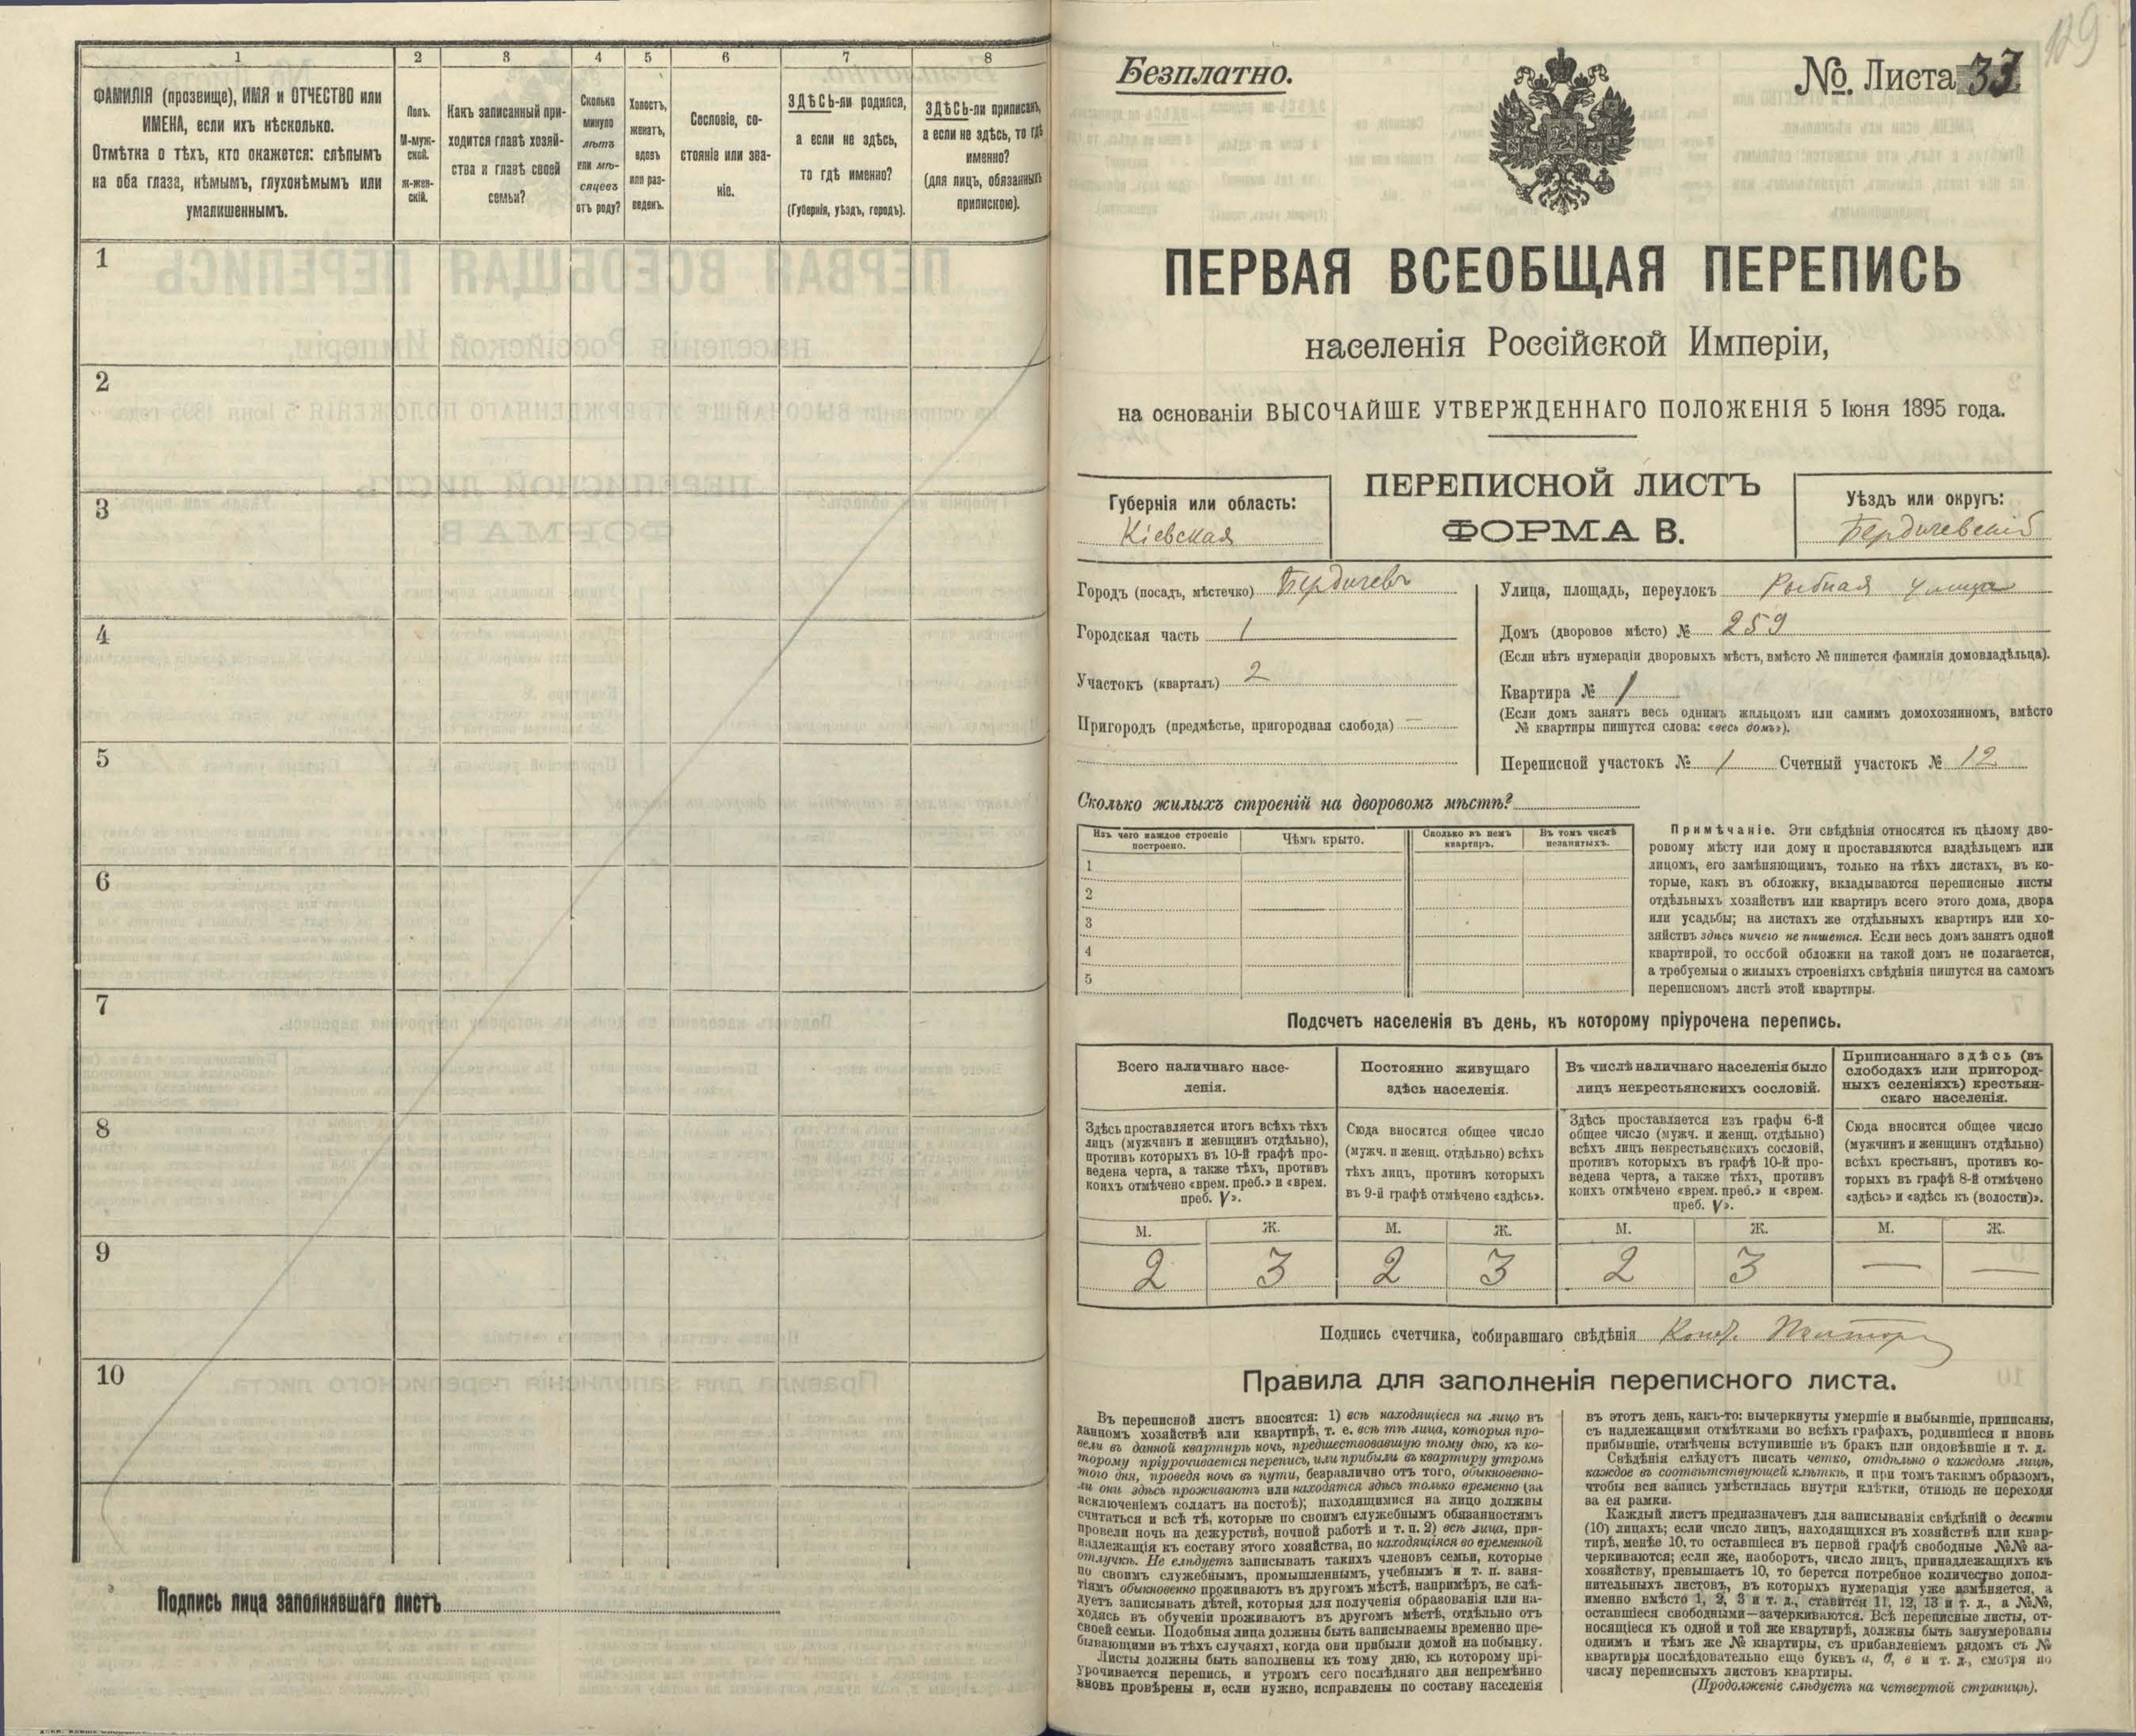 1 2 3 4 5 6 7 8
ФАМИЛІЯ (прозвище), ИМЯ и ОТЧЕСТВО или
ИМЕНА, если ихъ нѣсколько.
Отмѣтка о тѣхъ, кто окажется: слѣпымъ
на оба глаза, нѣмымъ, глухонѣмымъ или
умалишеннымъ.
Полъ.
М-муж-
ской.
Ж-жен-
скій.
Какъ записанный при-
ходится главѣ хозяй-
ства и главѣ своей
семьи?
Сколько
минуло
лѣтъ
или мѣ-
сяцевъ
отъ роду?
Холостъ,
женатъ,
вдовъ
или раз-
веденъ.
Сословіе, со-
стояніе или зва-
ніе.
ЗДѢСЬ-ли родился,
а если не здѣсь,
то гдѣ именно?
(Губернія, уѣздъ, городъ).
ЗДѢСЬ-ли приписанъ,
а если не здѣсь, то гдѣ
именно?
(для лицъ, обязанныхъ
припискою).
1
2
3
4
5
6
7
8
9
10
Подпись лица заполнявшаго листъ
129
Безплатно.
№ Листа 33
ПЕРВАЯ ВСЕОБЩАЯ ПЕРЕПИСЬ
населенія Россійской Имперіи,
на основаніи ВЫСОЧАЙШЕ УТВЕРЖДЕННАГО ПОЛОЖЕНІЯ 5 Іюня 1895 года.
Губернія или область:
Кіевская
ПЕРЕПИСНОЙ ЛИСТЪ
ФОРМА В.
Уѣздъ или округъ:
Бердичевскій
Городъ (посадъ, мѣстечко) Бердичевъ
Городская часть 1
Участокъ (кварталъ) 2
Пригородъ (предмѣстье, пригородная слобода) —
Улица, площадь, переулокъ Рыбная улица
Домъ (дворовое мѣсто) № 259
(Если нѣтъ нумераціи дворовыхъ мѣстъ, вмѣсто № пишется фамилія домовладѣльца).
Квартира № 1
(Если домъ занятъ весь однимъ жильцомъ или самимъ домохозяиномъ, вмѣсто
№ квартиры пишутся слова: «весь домъ»).
Переписной участокъ № 1 Счетный участокъ № 12
Сколько жилыхъ строеній на дворовомъ мѣстѣ?
Изъ чего каждое строеніе
построено.
Чѣмъ крыто.
Сколько въ немъ
квартиръ.
Въ томъ числѣ
незанятыхъ.
1
2
3
4
5
Примѣчаніе. Эти свѣдѣнія относятся къ цѣлому дво-
ровому мѣсту или дому и проставляются владѣльцемъ или
лицомъ, его замѣняющимъ, только на тѣхъ листахъ, въ ко-
торые, какъ въ обложку, вкладываются переписные листы
отдѣльныхъ хозяйствъ или квартиръ всего этого дома, двора
или усадьбы; на листахъ же отдѣльныхъ квартиръ или хо-
зяйствъ здѣсь ничего не пишется. Если весь домъ занятъ одной
квартирой, то особой обложки на такой домъ не полагается,
а требуемыя о жилыхъ строеніяхъ свѣдѣнія пишутся на самомъ
переписномъ листѣ этой квартиры.
Подсчетъ населенія въ день, къ которому пріурочена перепись.
Всего наличнаго насе-
ленія.
Постоянно живущаго
здѣсь населенія.
Въ числѣ наличнаго населенія было
лицъ некрестьянскихъ сословій.
Приписаннаго здѣсь (въ
слободахъ или пригород-
ныхъ селеніяхъ) крестьян-
скаго населенія.
Здѣсь проставляется итогъ всѣхъ тѣхъ
лицъ (мужчинъ и женщинъ отдѣльно),
противъ которыхъ въ 10-й графѣ про-
ведена черта, а также тѣхъ, противъ
коихъ отмѣчено «врем. преб.» и «врем.
преб. V».
Сюда вносится общее число
(мужч. и женщ. отдѣльно) всѣхъ
тѣхъ лицъ, противъ которыхъ
въ 9-й графѣ отмѣчено «здѣсь».
Здѣсь проставляется изъ графы 6-й
общее число (мужч. и женщ. отдѣльно)
всѣхъ лицъ некрестьянскихъ сословій,
противъ которыхъ въ графѣ 10-й про-
ведена черта, а также тѣхъ, противъ
коихъ отмѣчено «врем. преб.» и «врем.
преб. V».
Сюда вносится общее число
(мужчинъ и женщинъ отдѣльно)
всѣхъ крестьянъ, противъ ко-
торыхъ въ графѣ 8-й отмѣчено
«здѣсь» и «здѣсь къ (волости)».
М. Ж. М. Ж. М. Ж. М. Ж.
2 3 2 3 2 3 — —
Подпись счетчика, собиравшаго свѣдѣнія
Правила для заполненія переписного листа.
Въ переписной листъ вносятся: 1) всѣ находящіеся на лицо въ
данномъ хозяйствѣ или квартирѣ, т. е. всѣ тѣ лица, которыя про-
вели въ данной квартирѣ ночь, предшествовавшую тому дню, къ ко-
торому пріурочивается перепись, или прибыли въ квартиру утромъ
того дня, проведя ночь въ пути, безразлично отъ того, обыкновенно-
ли они здѣсь проживаютъ или находятся здѣсь только временно (за
исключеніемъ солдатъ на постоѣ); находящимися на лицо должны
считаться и всѣ тѣ, которые по своимъ служебнымъ обязанностямъ
провели ночь на дежурствѣ, ночной работѣ и т. п. 2) всѣ лица, при-
надлежащія къ составу этого хозяйства, но находящіяся во временной
отлучкѣ. Не слѣдуетъ записывать такихъ членовъ семьи, которые
по своимъ служебнымъ, промышленнымъ, учебнымъ и т. п. заня-
тіямъ обыкновенно проживаютъ въ другомъ мѣстѣ, напримѣръ, не слѣ-
дуетъ записывать дѣтей, которыя для полученія образованія или на-
ходясь въ обученіи проживаютъ въ другомъ мѣстѣ, отдѣльно отъ
своей семьи. Подобныя лица должны быть записываемы временно пре-
бывающими въ тѣхъ случаяхъ, когда они прибыли домой на побывку.
Листы должны быть заполнены къ тому дню, къ которому прі-
урочивается перепись, и утромъ сего послѣдняго дня непремѣнно
вновь провѣрены и, если нужно, исправлены по составу населенія
въ этотъ день, какъ-то: вычеркнуты умершіе и выбывшіе, приписаны,
съ надлежащими отмѣтками во всѣхъ графахъ, родившіеся и вновь
прибывшіе, отмѣчены вступившіе въ бракъ или овдовѣвшіе и т. д.
Свѣдѣнія слѣдуетъ писать четко, отдѣльно о каждомъ лицѣ,
каждое въ соотвѣтствующей клѣткѣ, и при томъ такимъ образомъ,
чтобы вся запись умѣстилась внутри клѣтки, отнюдь не переходя
за ея рамки.
Каждый листъ предназначенъ для записыванія свѣдѣній о десяти
(10) лицахъ; если число лицъ, находящихся въ хозяйствѣ или квар-
тирѣ, менѣе 10, то оставшіеся въ первой графѣ свободные №№ за-
черкиваются; если же, наоборотъ, число лицъ, принадлежащихъ къ
хозяйству, превышаетъ 10, то берется потребное количество допол-
нительныхъ листовъ, въ которыхъ нумерація уже измѣняется, а
именно вмѣсто 1, 2, 3 и т. д., ставится 11, 12, 13 и т. д., а №№,
оставшіеся свободными—зачеркиваются. Всѣ переписные листы, от-
носящіеся къ одной и той же квартирѣ, должны быть занумерованы
однимъ и тѣмъ же № квартиры, съ прибавленіемъ рядомъ съ №
квартиры послѣдовательно еще буквъ а, б, в и т. д., смотря по
числу переписныхъ листовъ квартиры.
(Продолженіе слѣдуетъ на четвертой страницѣ).